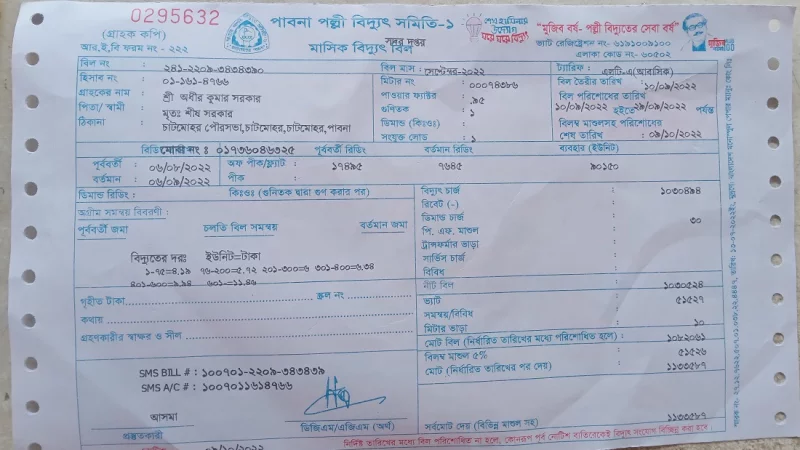 0295632
(গ্রাহক কপি)
আর.ই.বি ফরম নং - ২২২
পাবনা পল্লী বিদ্যুৎ সমিতি-১
সদর দপ্তর
মাসিক বিদ্যুৎ বিল
শেখ হাসিনার উদ্যোগ
ঘরে ঘরে বিদ্যুৎ
"মুজিব বর্ষ- পল্লী বিদ্যুতের সেবা বর্ষ"
ভ্যাট রেজিস্ট্রেশন নং- ৬১৯১০০৯১০০
এলাকা কোড নং- ৬০৫০২
বিল নং : ২৪১-২২০৯-৩৪৩৪৩৯০
হিসাব নং : ০১-১৬১-৪৭৬৬
গ্রাহকের নাম : শ্রী অধীর কুমার সরকার
পিতা/ স্বামী : মৃতঃ শীষ সরকার
ঠিকানা : চাটমোহর পৌরসভা,চাটমোহর,চাটমোহর,পাবনা
বিল মাস : সেপ্টেম্বর-২০২২
মিটার নং : ০০০৭৪৩৮৬
পাওয়ার ফ্যাক্টর : .৯৫
গুনিতক : ১
ডিমান্ড (কিঃওঃ) :
সংযুক্ত লোড : ১
ট্যারিফ : এলটি-এ(আবাসিক)
বিল তৈরীর তারিখ : ১০/০৯/২০২২
বিল পরিশোধের তারিখ
১০/০৯/২০২২ হইতে ২৯/০৯/২০২২ পর্যন্ত
বিলম্ব মাশুলসহ পরিশোধের
শেষ তারিখ : ০৯/১০/২০২২
মোবাইল নং : ০১৭৩৬০৪৬৩২৫ পূর্ববর্তী রিডিং বর্তমান রিডিং ব্যবহার (ইউনিট)
পূর্ববর্তী : ০৬/০৮/২০২২ অফ পীক/ফ্ল্যাট : ১৭৪৯৫ ৭৬৪৫ ৯০১৫০
বর্তমান : ০৬/০৯/২০২২ পীক :
ডিমান্ড রিডিং: কিঃওঃ (গুনিতক দ্বারা গুণ করার পর)
অগ্রীম সমন্বয় বিবরণী :
পূর্ববর্তী জমা চলতি বিল সমন্বয় বর্তমান জমা
বিদ্যুতের দরঃ ইউনিট=টাকা
১-৭৫=৪.১৯ ৭৬-২০০=৫.৭২ ২০১-৩০০=৬ ৩০১-৪০০=৬.৩৪
৪০১-৬০০=৯.৯৪ ৬০১-=১১.৪৬
গৃহীত টাকা স্ক্রল নং
কথায়
গ্রহণকারীর স্বাক্ষর ও সীল
বিদ্যুৎ চার্জ : ১০৩০৪৯৪
রিবেট (-) :
ডিমান্ড চার্জ : ৩০
পি. এফ. মাশুল :
ট্রান্সফর্মার ভাড়া :
সার্ভিস চার্জ :
বিবিধ :
নীট বিল : ১০৩০৫২৪
ভ্যাট : ৫১৫২৭
সমন্বয়/বিবিধ :
মিটার ভাড়া : ১০
মোট বিল (নির্ধারিত তারিখের মধ্যে পরিশোধিত হলে) : ১০৮২০৬১
বিলম্ব মাশুল ৫% : ৫১৫২৬
মোট (নির্ধারিত তারিখের পর দেয়) : ১১৩৩৫৮৭
সর্বমোট দেয় (বিভিন্ন মাশুল সহ) : ১১৩৩৫৮৭
SMS BILL # : ১০০৭০১-২২০৯-৩৪৩৪৩৯
SMS A/C # : ১০০৭০১১৬১৪৭৬৬
আসমা
প্রস্তুতকারী
ডিজিএম/এজিএম (অর্থ)
নির্দিষ্ট তারিখের মধ্যে বিল পরিশোধিত না হলে, কোনরূপ পূর্ব নোটিশ ব্যতিরেকেই বিদ্যুৎ সংযোগ বিচ্ছিন্ন করা হবে।